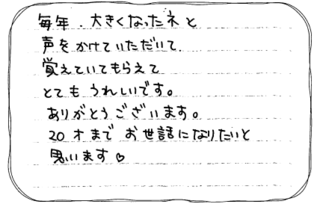 毎年、大きくなったネと
声をかけていただいて、
覚えていてもらえて
とてもうれしいです。
ありがとうございます。
20才まで お世話になりたいと
思います♡